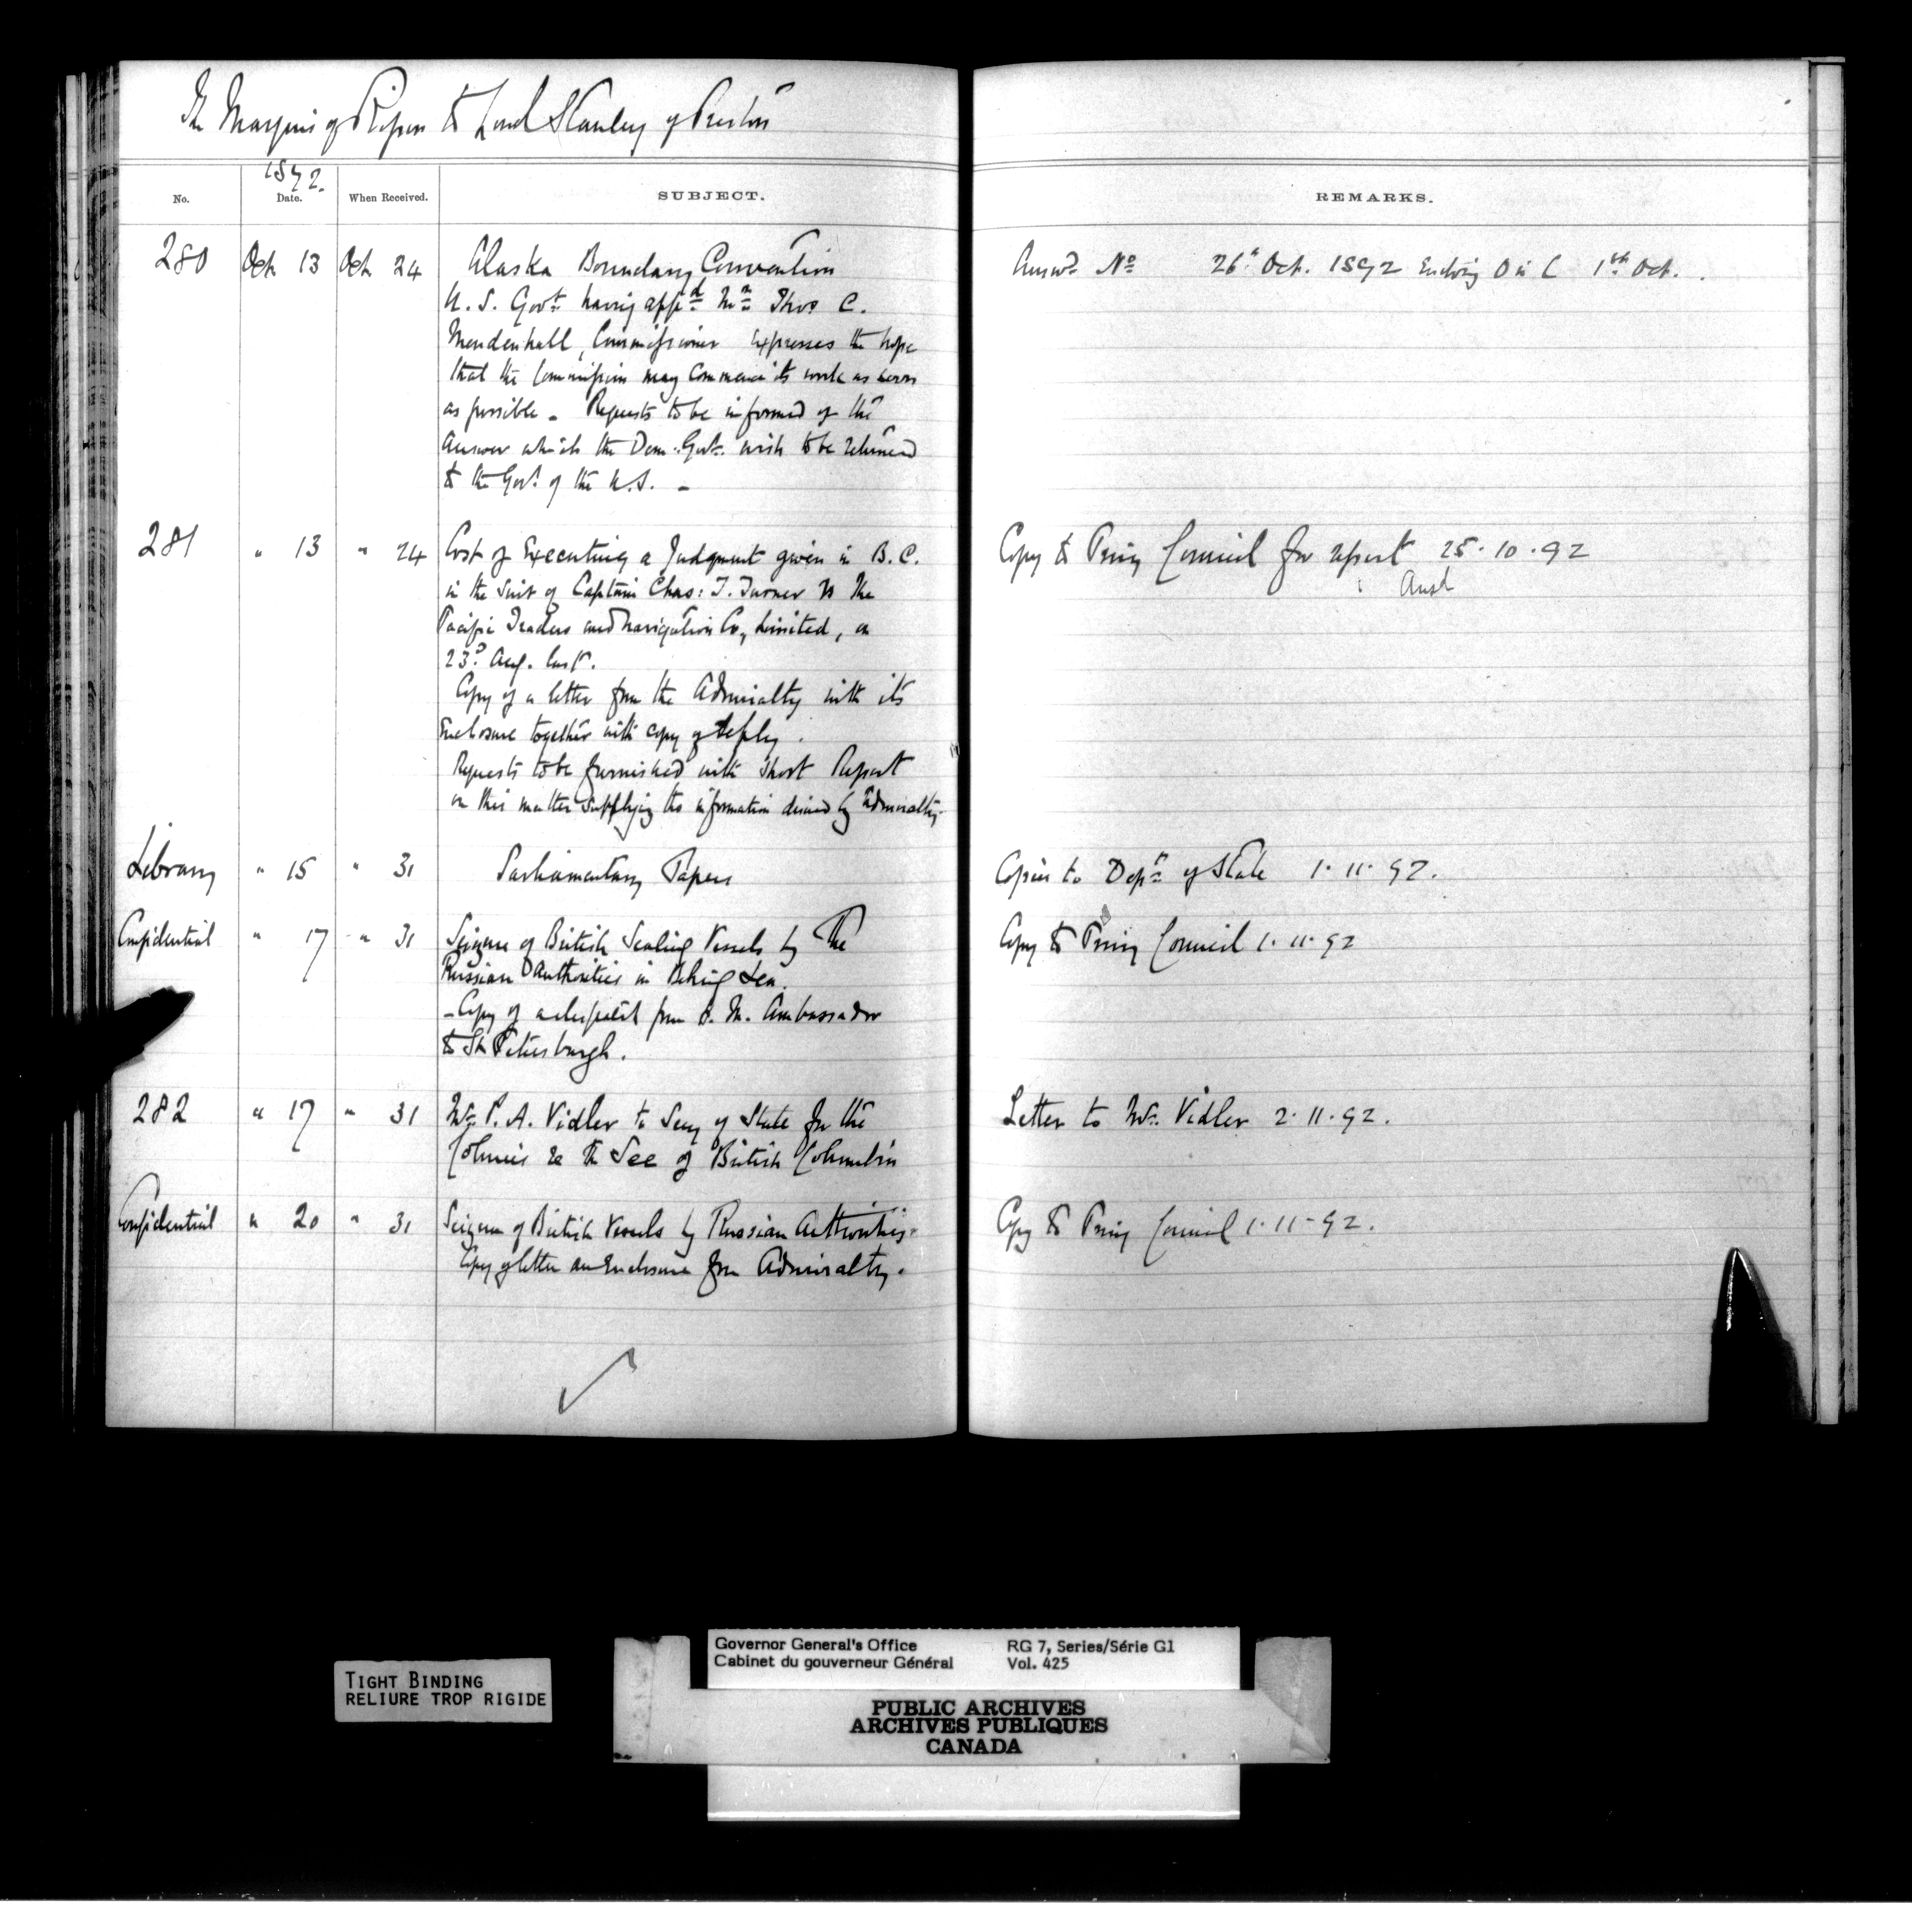 The Marquis of Ripon to Lord Stanley of Preston
1892.
No. Date. When Received. SUBJECT. REMARKS.
280 Oct. 13 Oct. 24 Alaska Boundary Convention Answd. No. 26th Oct. 1892 Enclosing O in C 1st Oct.
U. S. Govt. having appd. Mr. Thos C.
Mendenhall, Commissioner expresses the hope
that the Commission may commence its work as soon
as possible _ Requests to be informed of the
Answer which the Dom. Govt. wish to be returned
to the Govt. of the U.S. _
281 " 13 " 24 Cost of Executing a Judgment given in B.C. Copy to Privy Council for report 25.10.92
in the Suit of Captain Chas: T. Turner vs The Ansd
Pacific Traders and Navigation Co., Limited, on
23d. Aug. last.
Copy of a letter from the Admiralty with its
Enclosure together with copy of reply.
Requests to be furnished with short Report
on this matter supplying the information desired by Admiralty.
Library " 15 " 31 Parliamentary Papers Copies to Dept. of State 1.11.92.
Confidential " 17 " 31 Seizure of British Sealing Vessels by The Copy to Privy Council 1.11.92
Russian Authorities in Behring Sea.
_ Copy of a despatch from H. M. Ambassador
to St Petersburgh.
282 " 17 " 31 Mr. P. A. Vidler to Secy of State for the Letter to Mr. Vidler 2.11.92.
Colonies re the See of British Columbia
Confidential " 20 " 31 Seizure of British Vessels by Russian Authorities. Copy to Privy Council 1.11.92.
Copy of letter an Enclosure from Admiralty.
Governor General's Office RG 7, Series/Série G1
Cabinet du gouverneur Général Vol. 425
TIGHT BINDING
RELIURE TROP RIGIDE
PUBLIC ARCHIVES
ARCHIVES PUBLIQUES
CANADA